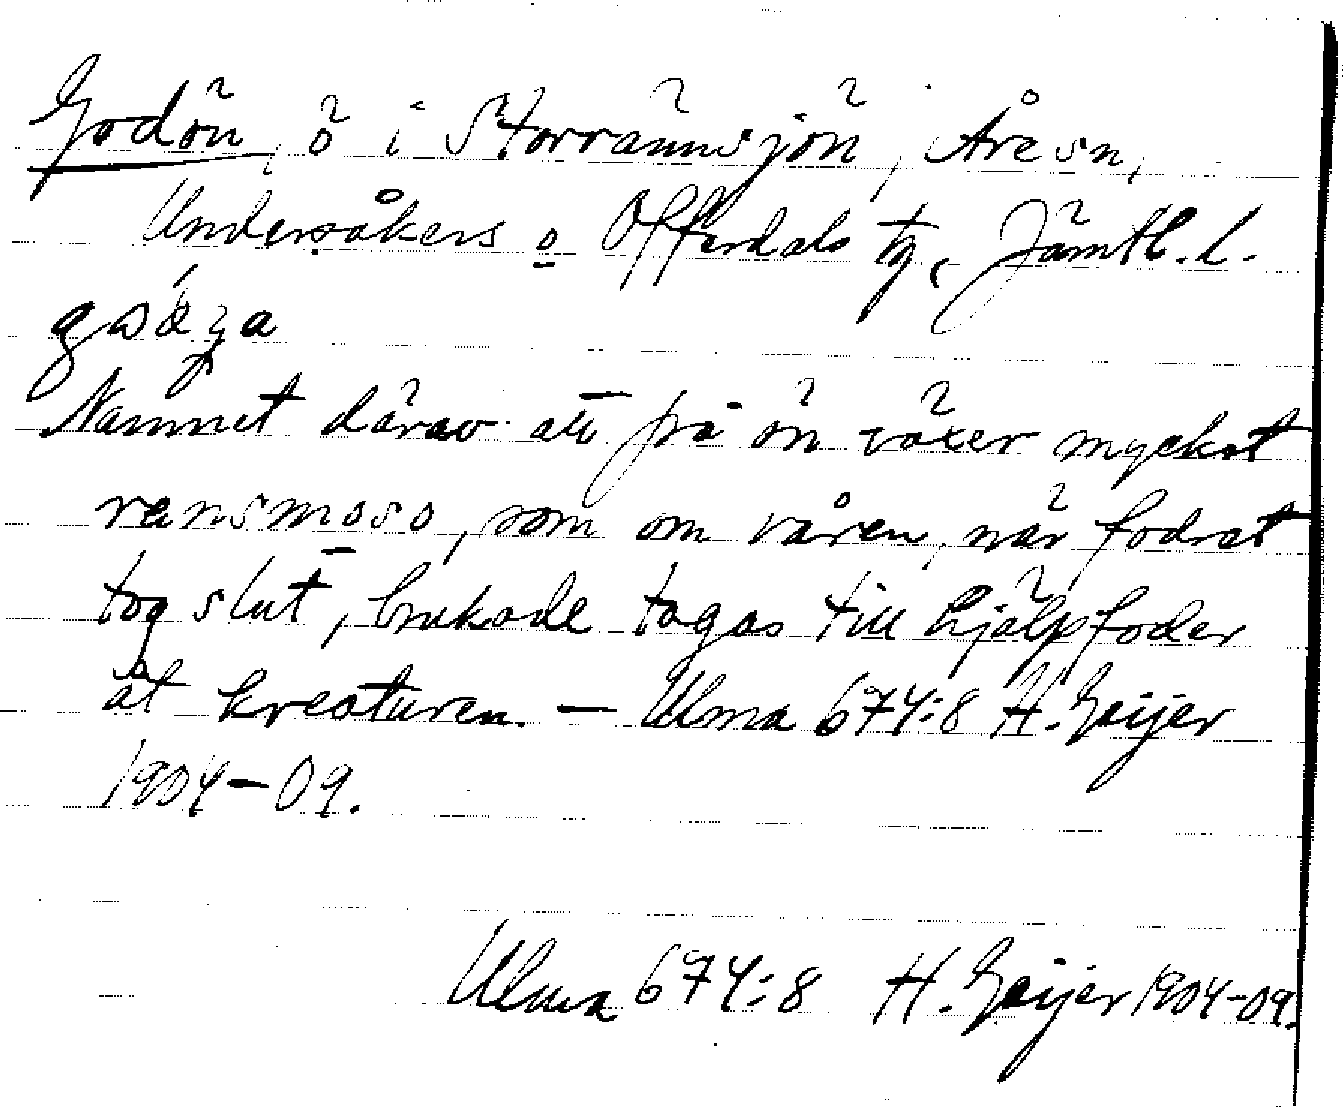 Godön, ö i Storrännsjön, Åre sn,
Undersåkers o Offerdals tg, Jämtl. l.
Namnet därav att på ön växer mycket
rensmoso, som om våren, när fodret
tog slut, brukade tagas till hjälpfoder
åt kreaturen. — Ulma 674:8 H. Geijer
1904-09.
Ulma 674:8 H. Geijer 1904-09.